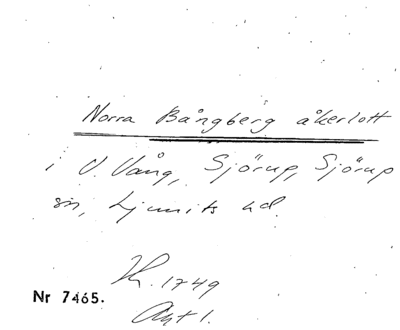 Norra Bångberg åkerlott
i V. Vång, Sjörup, Sjörup
sn, Ljunits hd.
H. 1749
Nr 7465.
Akt 1.